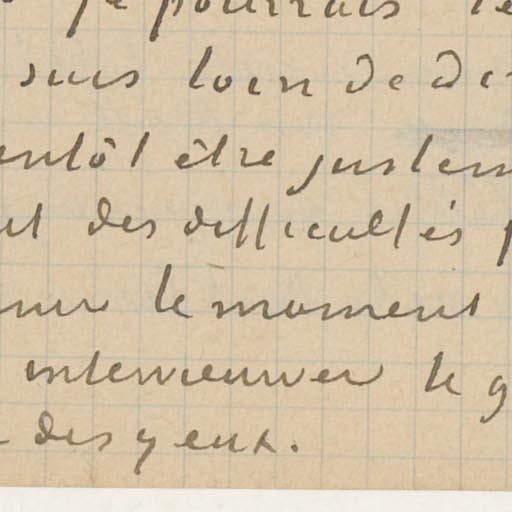 je pourrais
suis loin de d
entôt être justem
ut des difficultés p
enir le moment
interviewer le g
des yeux.